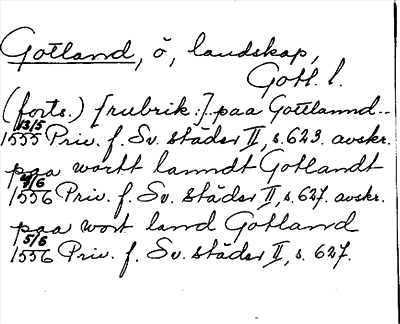 Gotland, ö, landskap,
Gotl. l.
(forts.) [rubrik:] paa Gottlannd..
13/5
1555 Priv. f. Sv. städer II, s. 623. avskr.
paa wortt lanndt Gotlandt
4/6
1556 Priv. f. Sv. städer II, s. 627. avskr.
paa wort land Gotland
5/6
1556 Priv. f. Sv. städer II, s. 627.